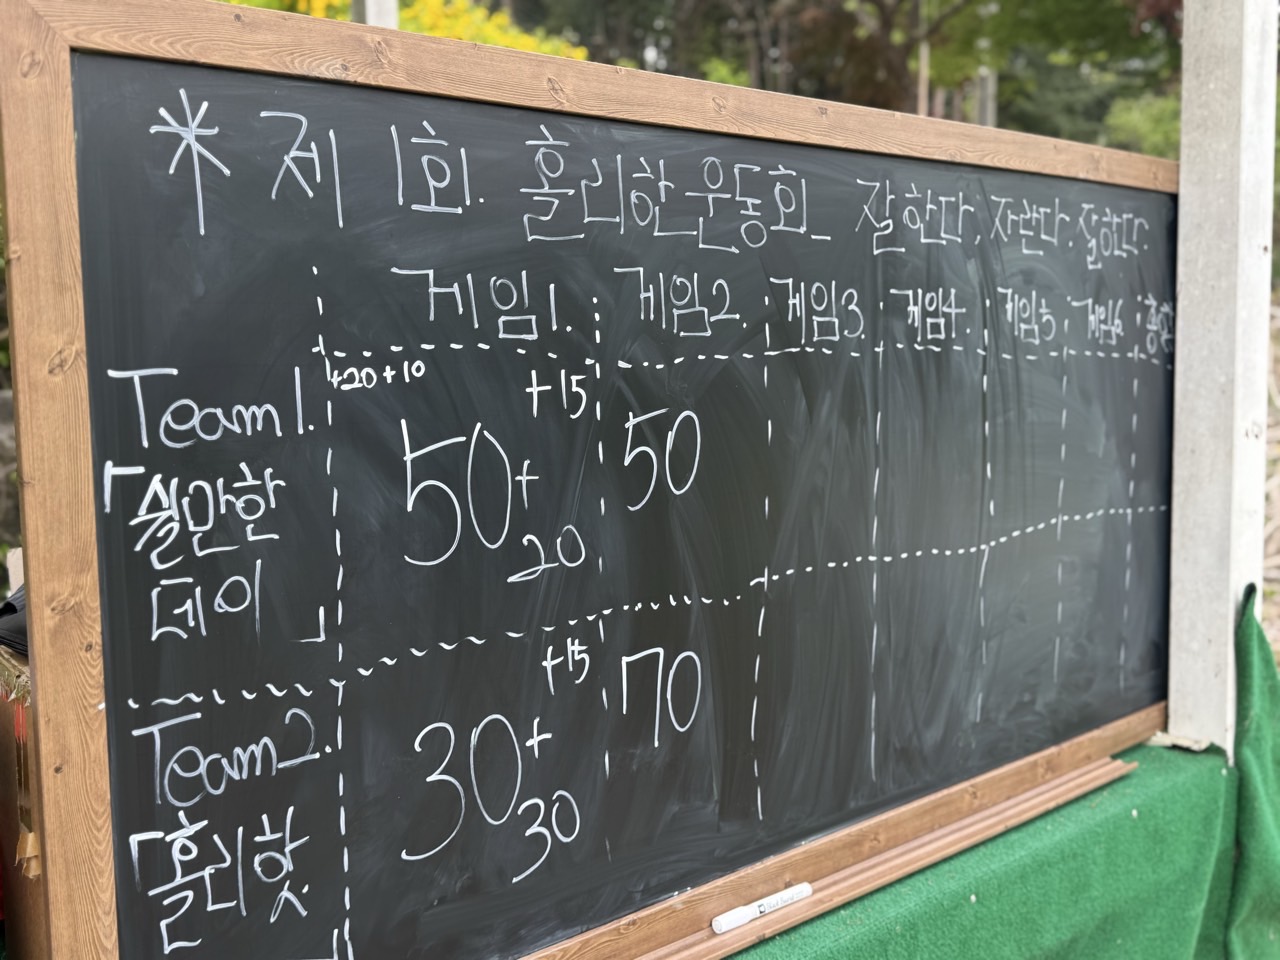 * 제 1회. 홀리한 운동회_ 잘한다, 자란다. 잘한다.
게임1. 게임2. 게임3. 게임4. 게임5 게임6
Team1.
「쉴만한
데이」
+20+10 +15
50+20
50
Team2.
「홀리핫」
+15
30+30
70